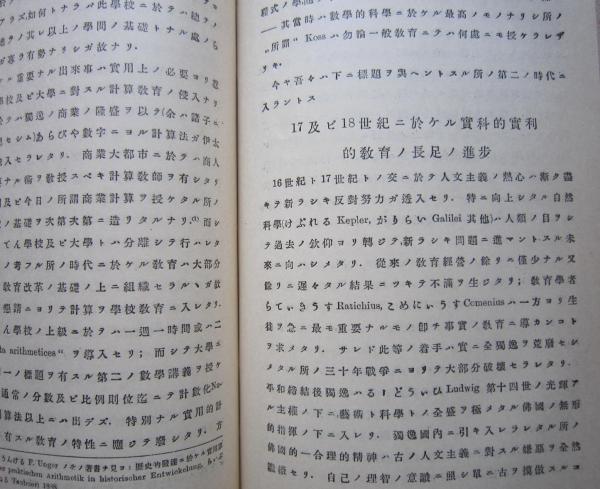 アラズ如何トナラバ此學校ニ於テハ總テノ
總テノ其レ以上ノ學問ノ基礎トナル處ノら
ガ專ラ有勢ナリシガ故ナリ.
ル重要ナル出來事ハ實用上ノ必要ヨリ惹
學校及ビ大學ニ對スル計算教育ノ侵入ナリ
テハ獨逸ノ商業ノ隆盛ヲ以テ(余ハ諸子ニ
セシム)あらびや數字ニヨル計算法ガ伊太
入セラレタリ. 商業大都市ニ於テハ商人
ナル術ヲ教授スベキ計算教師ヲ有シタリ
及ビ今日ノ所謂商業計算ヲ授ケタル所ノ
ノ基礎ヲ次第次第ニ造リタルナリ.⁽¹⁾而シ
てん學校及ビ大學トハ分離シテ行ハレタ
ノ考フル所ノ時代ニ於ケル教育ハ大部分
教育改革ノ基礎ノ上ニ組織セラルヽガ故
懇請ニヨリテ計算ヲ學校教育ニ入レタリ.
ん學校ノ上級ニ於テハ一週一時間或ハ二
da arithmetices“ ヲ導入セリ; 而シテ大學ニ
一ノ標題ヲ有スル第二ノ數學講義ヲ授ケ
通常ノ分數及ビ比例則位迄ニテ計數化Nu-
算法以上ニハ出デズ. 特別ナル實用的計
有スル教育ノ特性ニ應ジテ發シタリ. 方
うんげる F. Unger ノモノ著書ヲ見ヨ: 歷史的發達ニ於ケル實用算
er praktischen arithmetik in historischer Entwickelung,
Teubien 1888.
程式ノ學
―其當時ハ數學的科學ニ於ケル最高ノモノナリシ所ノ
"所謂“ Koss ハ勿論一般教育ニテハ何處ニモ授ケラレザ
リキ.
今ヤ吾々ハ下ニ標題ヲ與ヘントスル所ノ第二ノ時代ニ
入ラントス
17及ビ18世紀ニ於ケル實科的實利
的教育ノ長足ノ進步
16世紀ト17世紀トノ交ニ於テ人文主義ノ熱心ハ漸ク盡
キテ新ラシキ反對努力ガ透入セリ. 特ニ向上シタル自然
科學(けぷれる Kepler, がりらい Galilei 其他)ハ人類ノ目ヲシ
テ過去ノ欽仰ヨリ轉ジテ,新ラシキ問題ニ進マントスル未
來ニ向ハシメタリ. 從來ノ教育經營ノ餘リニ僅少ナル又
餘リニ遲々タル結果ニツキテ不滿ヲ生ジタリ; 教育學者
らていきうす Ratichius, こめにいうす Comenius ハ一方ヨリ生
徒ヲ急ニ最モ重要ナルモノ卽チ事實ノ教育ニ導カンコト
ヲ求メタリ. サレド此等ノ着手ハ實ニ全獨逸ヲ荒廢セシ
メタル所ノ三十年戰爭ニヨリテ大部分破壞セラレタリ.
平和締結後獨逸ハるーどうぃひ Ludwig 第十四世ノ光輝ア
ル主權ノ下ニ,藝術ト科學トノ全盛ヲ極メタル佛國ノ無形
的指揮ノ下ニ入レリ. 獨逸國內ニ引キ入レラレタル所ノ
佛國的―合理的精神ハ古ノ人文主義ニ對スル嫌惡ヲ全然
繼傚セリ. 自己ノ理智ノ意識ニ照シ單ニ古ヲ摸倣スルコ